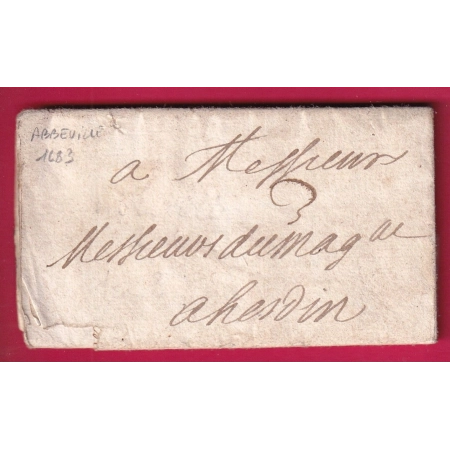 ABBEVILLE
1683
a Messieurs
3
Messieurs du mag at
a hesdin